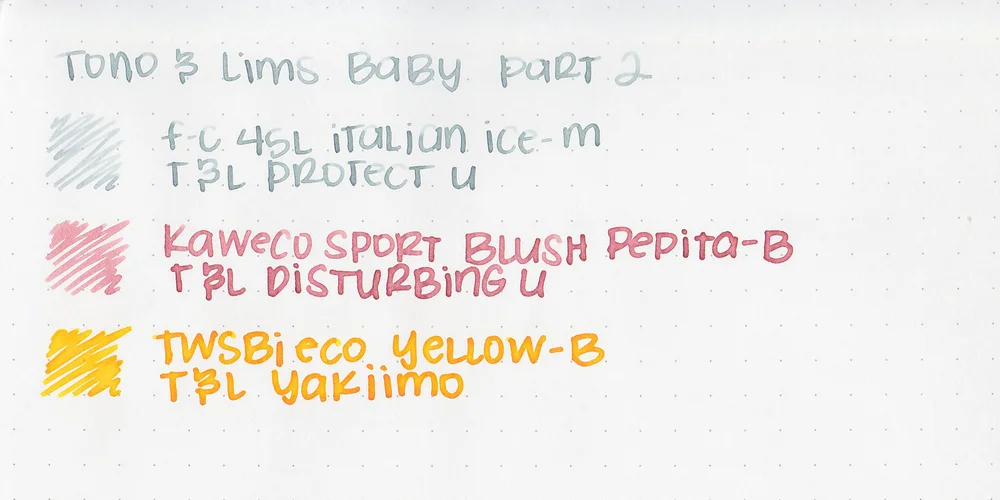 Tono & Lims Baby part 2
F-C 45L italian ice-m
T&L Protect U
Kaweco Sport Blush Pepita-B
T&L Disturbing U
TWSBI eco yellow-B
T&L Yakiimo